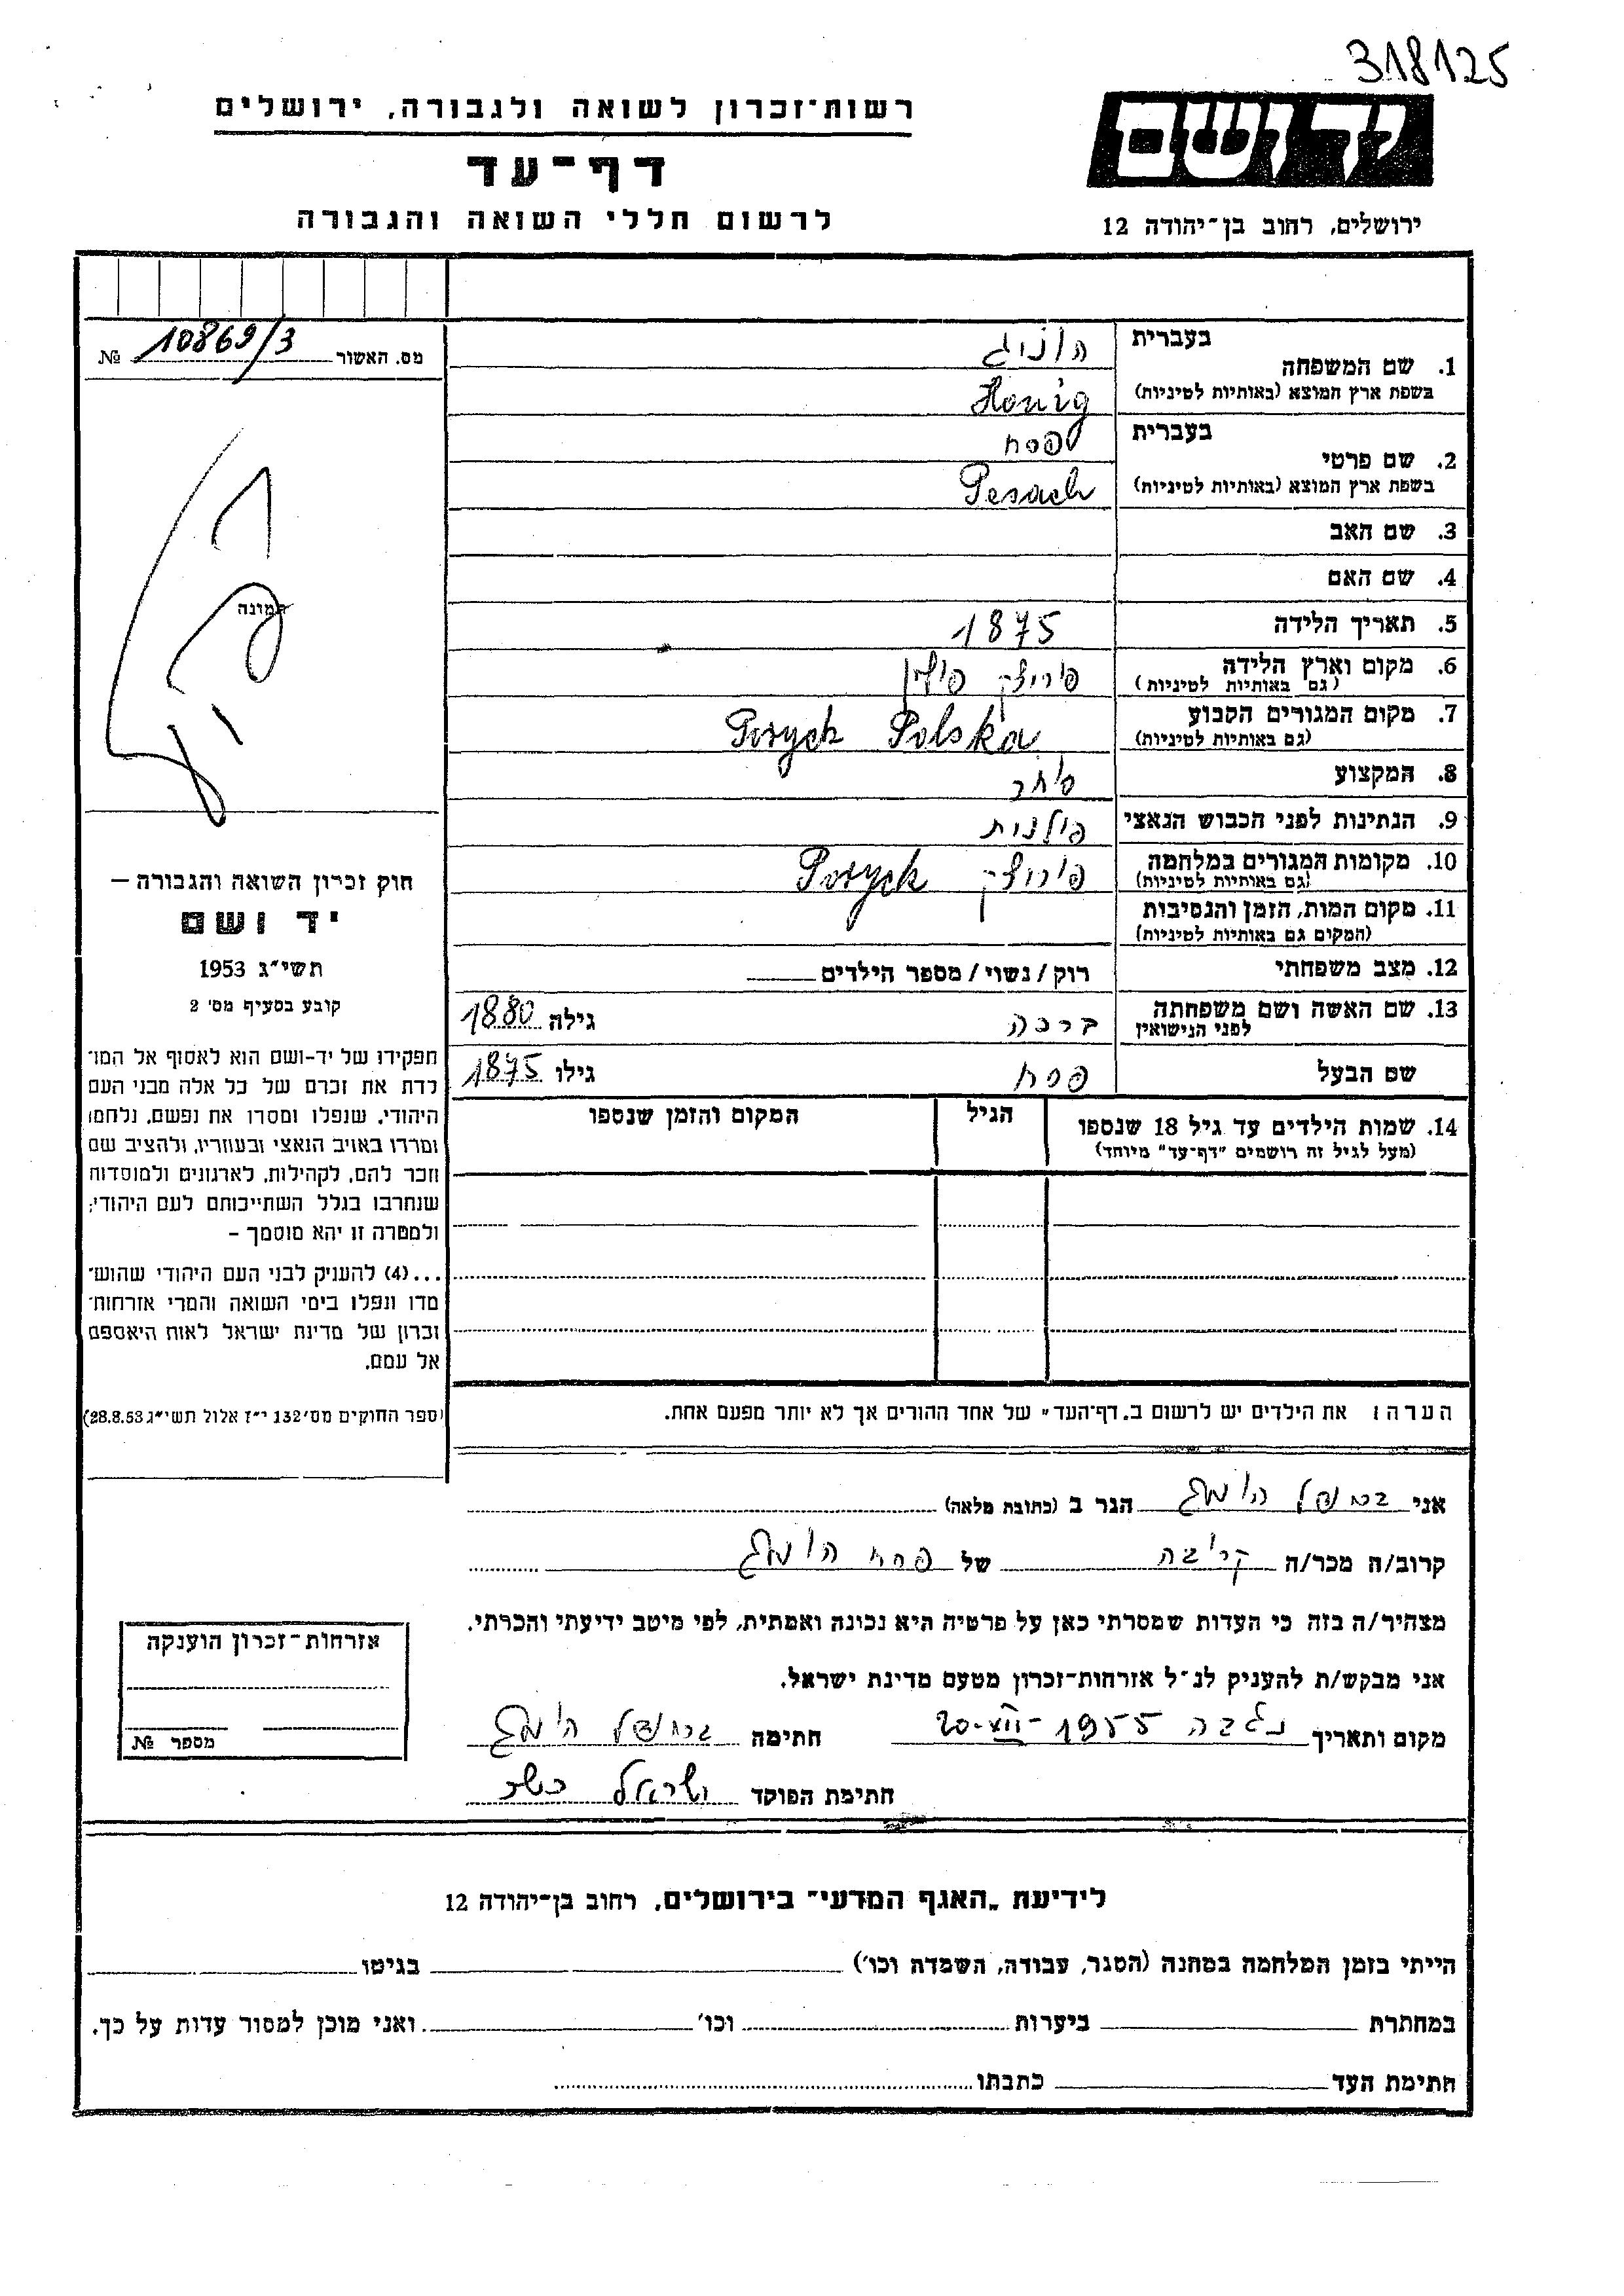 318125
רשות־זכרון לשואה ולגבורה, ירושלים
יד ושם
דף־עד
לרשום חללי השואה והגבורה
ירושלים, רחוב בן־יהודה 12
מס. האשור 10869/3 №
בעברית
1. שם המשפחה
הוניג
בשפת ארץ המוצא (באותיות לטיניות)
Honig
בעברית
2. שם פרטי
פסח
בשפת ארץ המוצא (באותיות לטיניות)
Pesach
3. שם האב
4. שם האם
5. תאריך הלידה 1875
6. מקום וארץ הלידה
(גם באותיות לטיניות)
פוריצק פולין
7. מקום המגורים הקבוע
(גם באותיות לטיניות)
Poryck Polska
8. המקצוע סוחר
9. הנתינות לפני הכבוש הנאצי פולנית
10. מקומות המגורים במלחמה
(גם באותיות לטיניות)
פוריצק Poryck
11. מקום המות, הזמן והנסיבות
(המקום גם באותיות לטיניות)
12. מצב משפחתי רוק / נשוי / מספר הילדים
13. שם האשה ושם משפחתה
לפני הנישואין
ברכה גילה 1880
שם הבעל פסח גילו 1875
14. שמות הילדים עד גיל 18 שנספו
(מעל לגיל זה רושמים "דף־עד" מיוחד)
הגיל
המקום והזמן שנספו
הערה: את הילדים יש לרשום ב„דף־העד" של אחד ההורים אך לא יותר מפעם אחת.
תמונה
חוק זכרון השואה והגבורה —
יד ושם
תשי״ג 1953
קובע בסעיף מס' 2
תפקידו של יד-ושם הוא לאסוף אל המו־
לדת את זכרם של כל אלה מבני העם
היהודי, שנפלו ומסרו את נפשם, נלחמו
ומרדו באויב הנאצי ובעוזריו, ולהציב שם
וזכר להם, לקהילות, לארגונים ולמוסדות
שנחרבו בגלל השתייכותם לעם היהודי;
ולמטרה זו יהא מוסמך –
...(4) להעניק לבני העם היהודי שהוש־
מדו ונפלו בימי השואה והמרי אזרחות־
זכרון של מדינת ישראל לאות היאספם
אל עמם.
(ספר החוקים מס' 132 י״ז אלול תשי״ג 28.8.53)
אני הוניג הגר ב (כתובת מלאה)
קרוב/ה מכר/ה קרובה של פסח הוניג
מצהיר/ה בזה כי העדות שמסרתי כאן על פרטיה היא נכונה ואמתית, לפי מיטב ידיעתי והכרתי.
אני מבקש/ת להעניק לנ״ל אזרחות-זכרון מטעם מדינת ישראל.
מקום ותאריך 20-XII-1955 חתימה הוניג
חתימת הפוקד ישראל
אזרחות-זכרון הוענקה
מספר №
לידיעת „האגף המדעי" בירושלים, רחוב בן־יהודה 12
הייתי בזמן המלחמה במחנה (הסגר, עבודה, השמדה וכו') בגיטו
במחתרת ביערות וכו' ואני מוכן למסור עדות על כך.
חתימת העד כתבתו